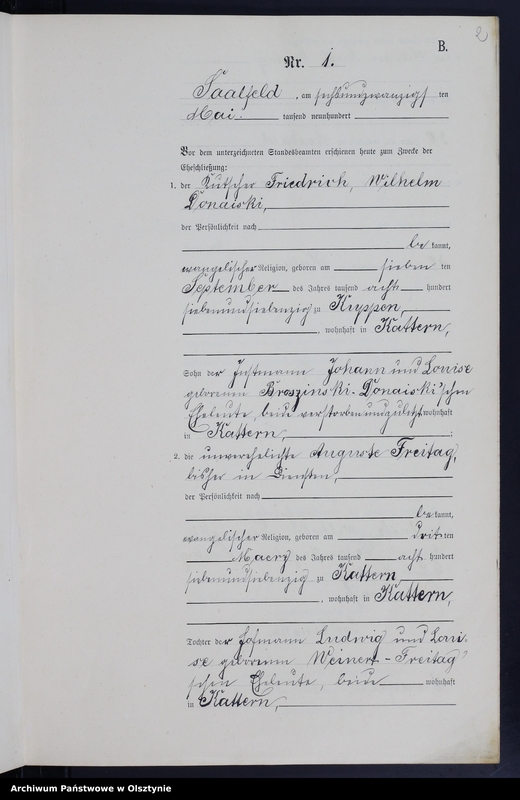 2
B.
Nr. 1.
Saalfeld, am sechsundzwanzigs ten
Mai tausend neunhundert
Vor dem unterzeichneten Standesbeamten erschienen heute zum Zwecke der
Eheschließung:
1. der Kutscher Friedrich, Wilhelm
Donaiski,
der Persönlichkeit nach
be kannt,
evangelischer Religion, geboren am sieben ten
September des Jahres tausend acht hundert
siebenundsiebenzig zu Kuppen,
, wohnhaft in Kattern,
Sohn der Instmann Johann und Louise
geborenen Broszinski-Donaiski'schen
Eheleute, beide verstorben und zuletzt wohnhaft
in Kattern,
2. die unverehelichte Auguste Freitag,
bisher in Diensten,
der Persönlichkeit nach
be kannt,
evangelischer Religion, geboren am drit ten
Maerz des Jahres tausend acht hundert
siebenundsiebenzig zu Kattern
, wohnhaft in Kattern,
Tochter der Hofmann Ludwig und Loui-
se geborenen Weinert-Freitag'
schen Eheleute, beide wohnhaft
in Kattern,
Archiwum Państwowe w Olsztynie